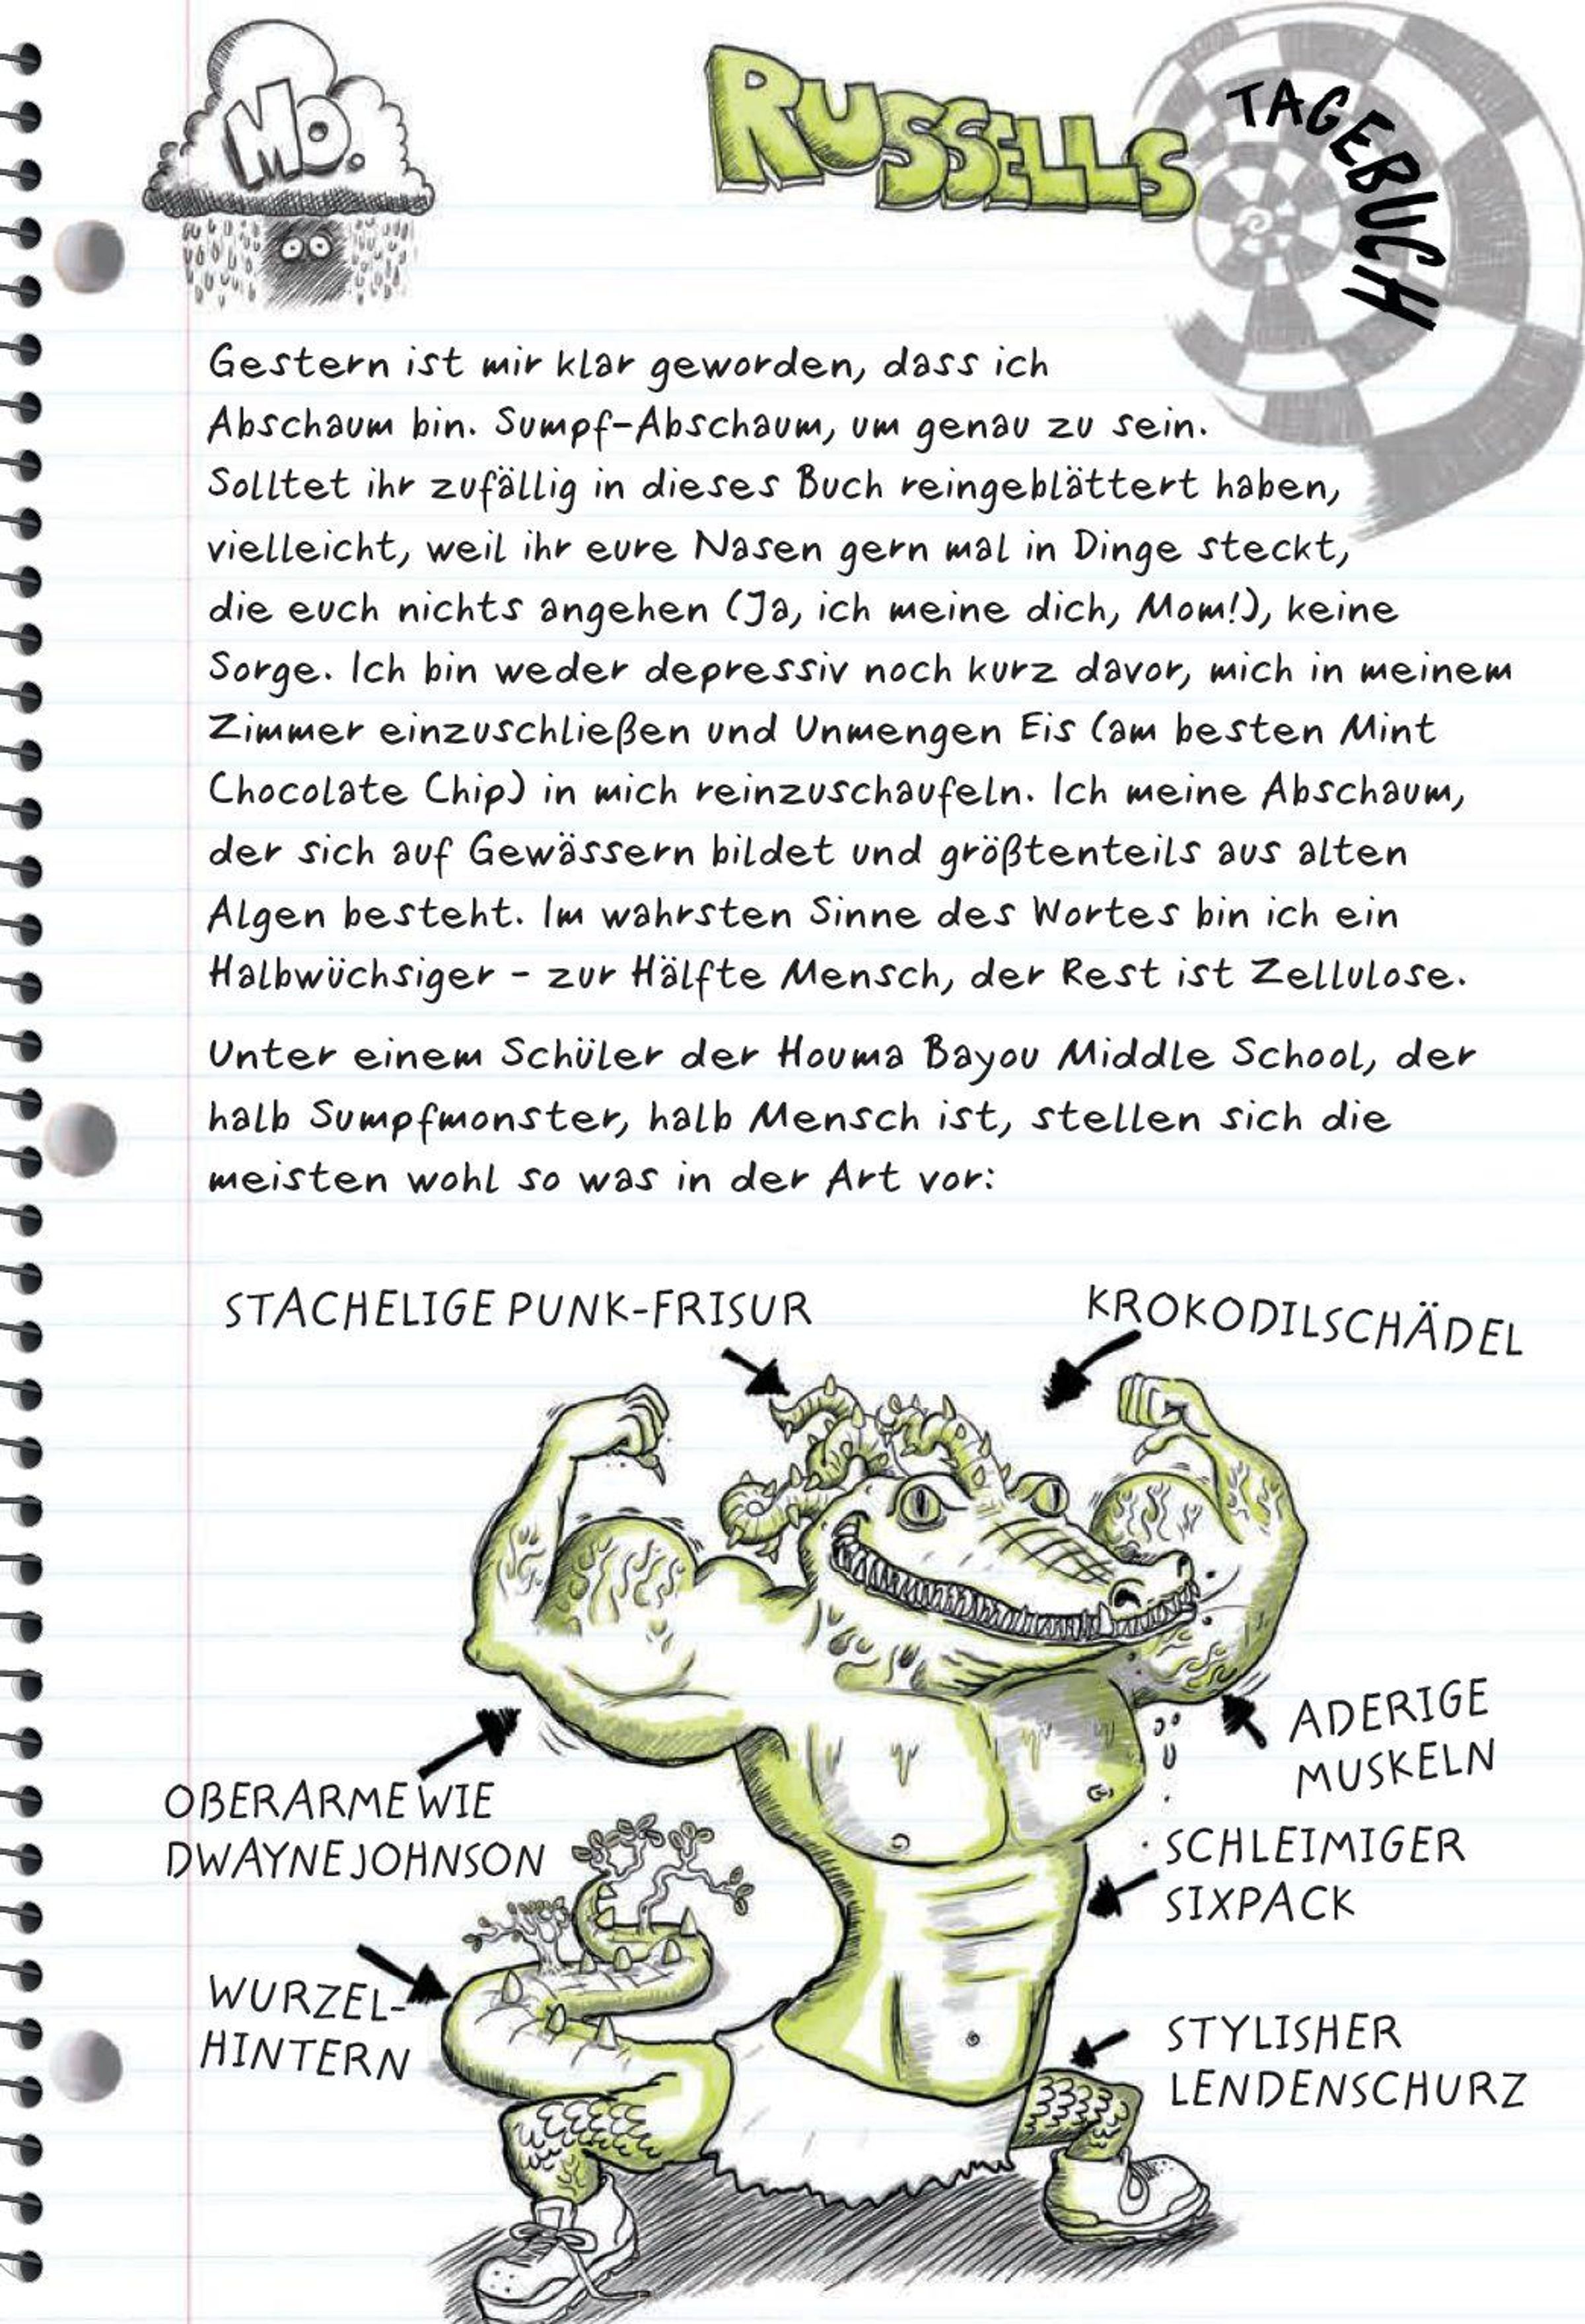 MO.
RUSSELLS
TAGEBUCH
Gestern ist mir klar geworden, dass ich
Abschaum bin. Sumpf-Abschaum, um genau zu sein.
Solltet ihr zufällig in dieses Buch reingeblättert haben,
vielleicht, weil ihr eure Nasen gern mal in Dinge steckt,
die euch nichts angehen (Ja, ich meine dich, Mom!), keine
Sorge. Ich bin weder depressiv noch kurz davor, mich in meinem
Zimmer einzuschließen und Unmengen Eis (am besten Mint
Chocolate Chip) in mich reinzuschaufeln. Ich meine Abschaum,
der sich auf Gewässern bildet und größtenteils aus alten
Algen besteht. Im wahrsten Sinne des Wortes bin ich ein
Halbwüchsiger - zur Hälfte Mensch, der Rest ist Zellulose.
Unter einem Schüler der Houma Bayou Middle School, der
halb Sumpfmonster, halb Mensch ist, stellen sich die
meisten wohl so was in der Art vor:
STACHELIGE PUNK-FRISUR
KROKODILSCHÄDEL
ADERIGE
MUSKELN
OBERARME WIE
DWAYNE JOHNSON
SCHLEIMIGER
SIXPACK
WURZEL-
HINTERN
STYLISHER
LENDENSCHURZ